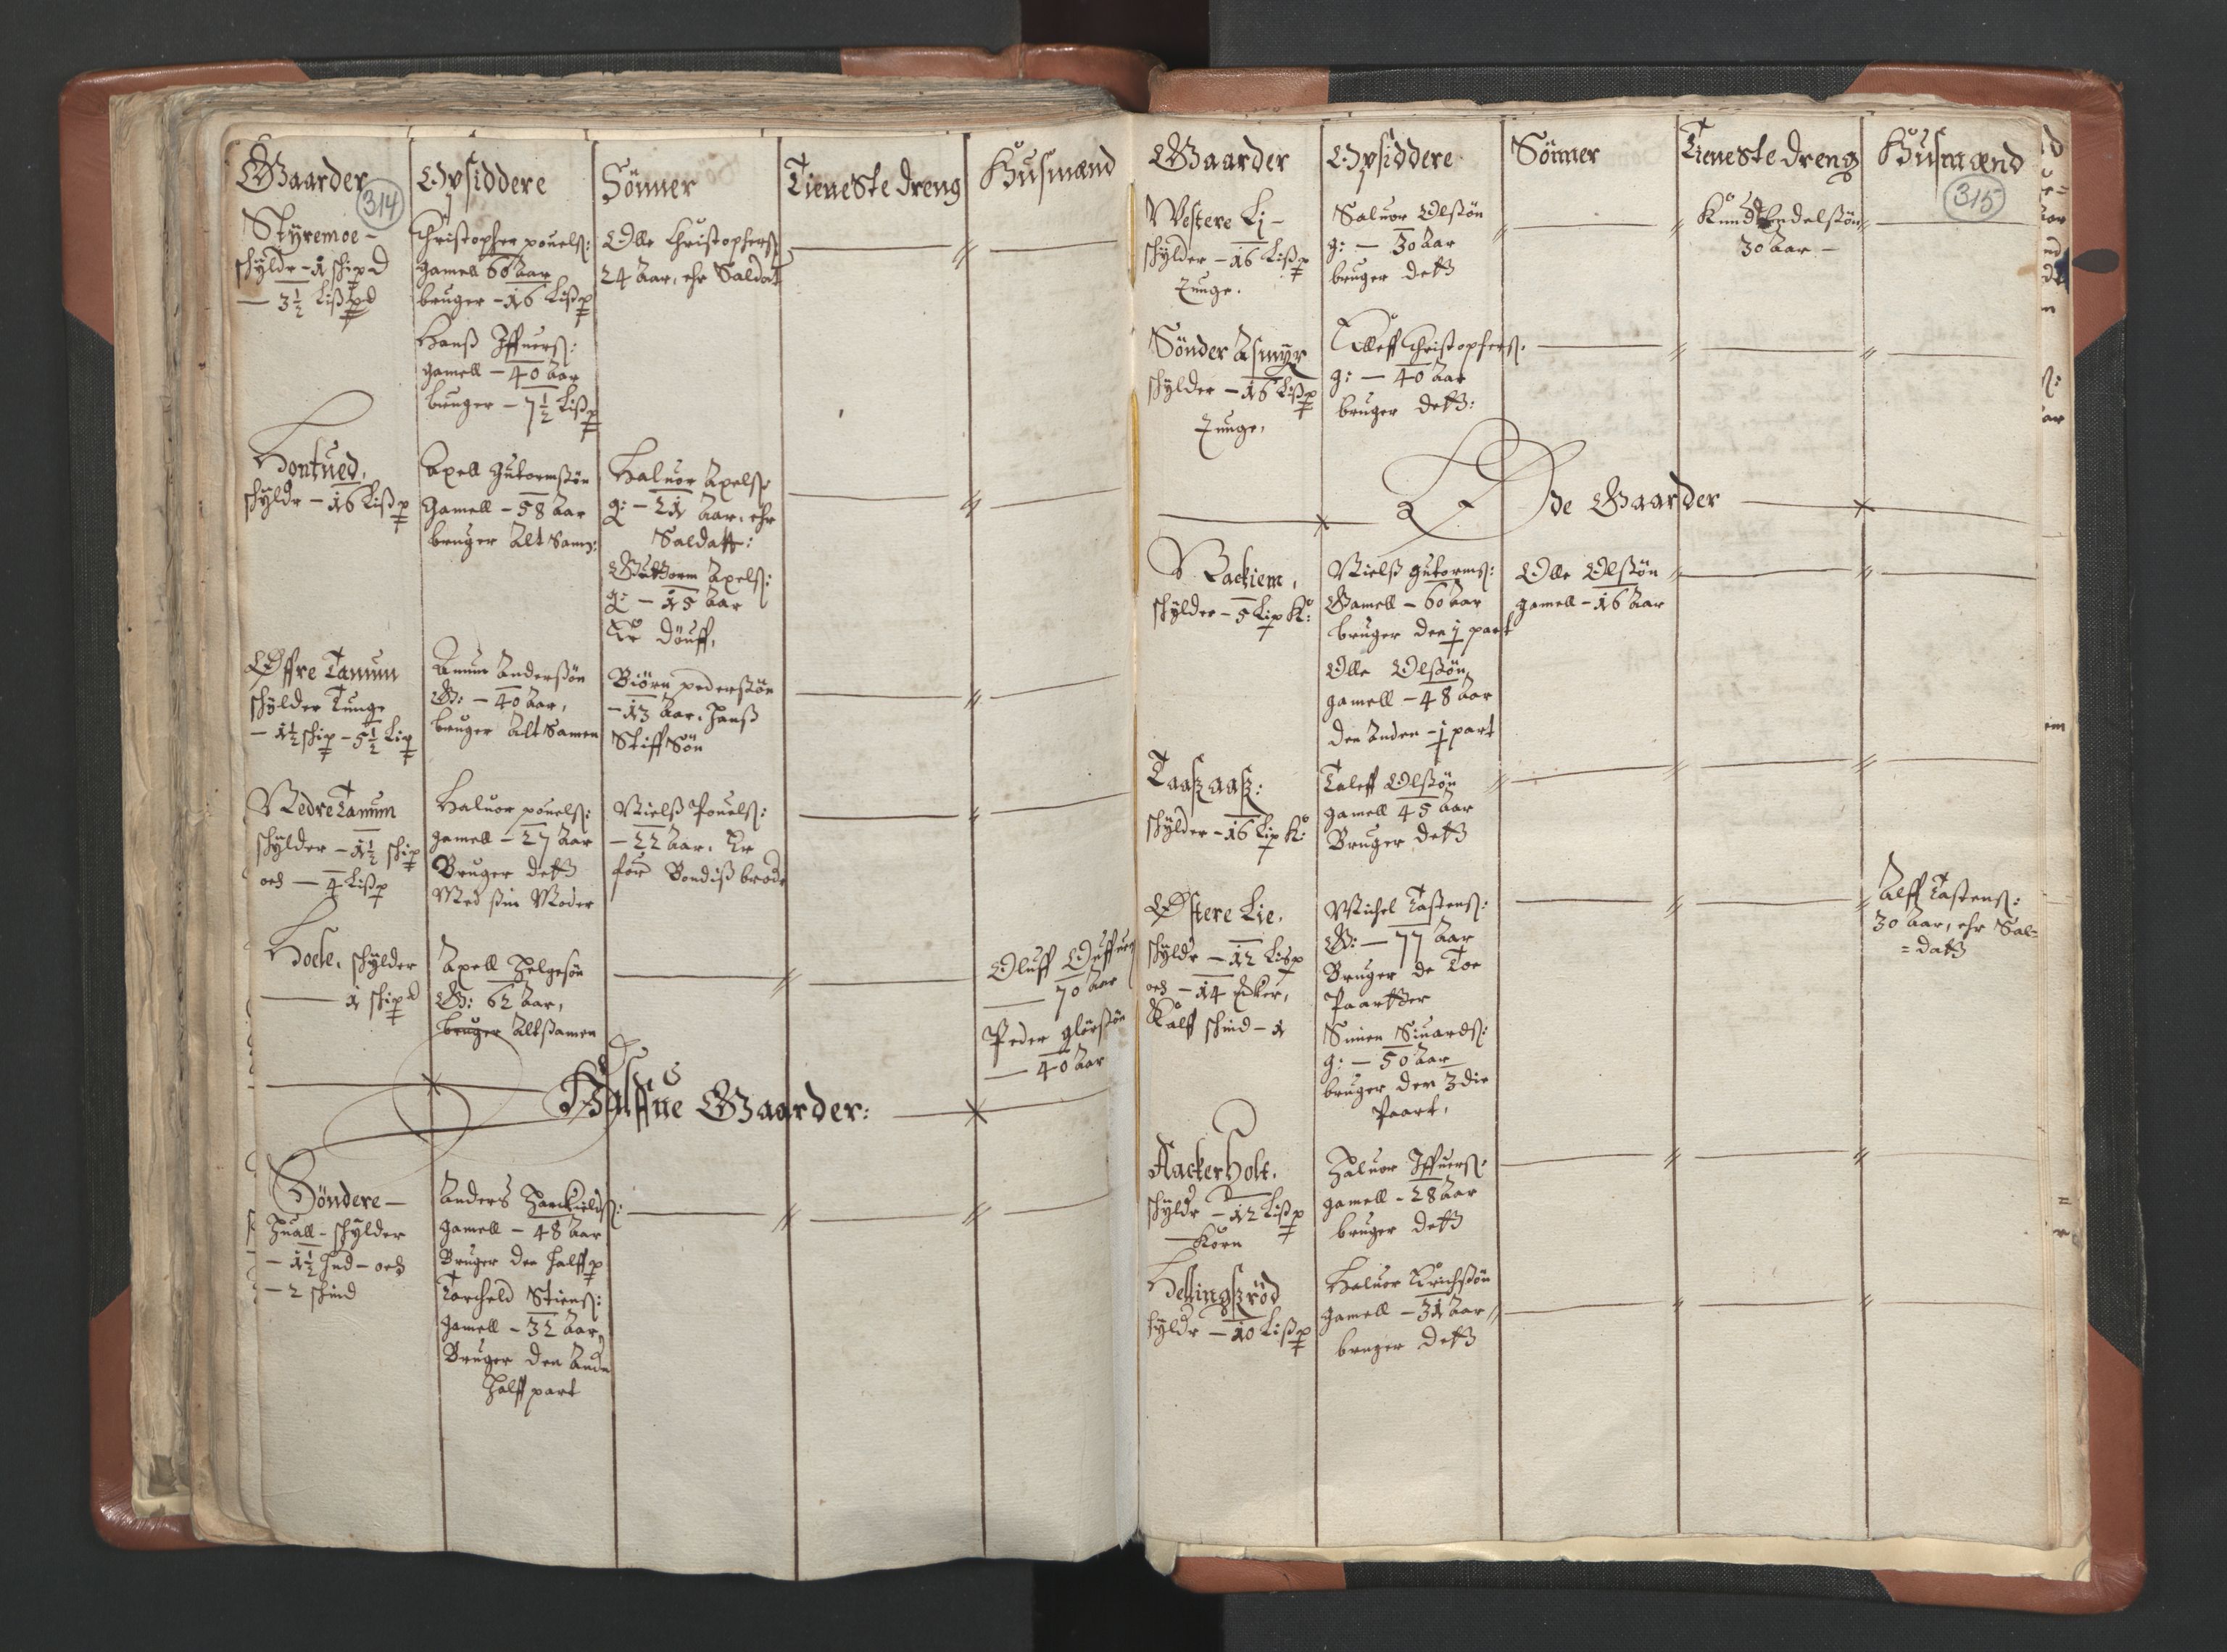 Gaarder
Opsiddere
Sönner
Tieneste dreng
Husmænd
314
Styremoe –
schyldr – 1 schipd
– 3½ Lißpd
Christopher pouels:
gamell 60 Aar
bruger – 16 Lißp
Hanß Iffuers:
gamell – 40 Aar
bruger – 7½ Lißp
Olle Christophers
24 Aar, ehr Saldat
Hontued,
schyldr – 16 Lißp
Axell Gutormßön
Gamell – 58 Aar
bruger Alt Sam:
Haluor Axels:
g: – 21 Aar, ehr
Saldatt:
Guttorm Axels:
g: – 15 Aar
Er döuff,
Öffre Tanum
schylder Tunge
– 1½ schip – 5½ Lip
Anderßön
G: – 40 Aar,
bruger Alt Samen
Biörn pederßön
– 13 Aar. Hanß
StiffSön
Nedre Tanum
schylder – 1½ schip
och – 4 Lißp
Haluor pouels:
gamell – 27 Aar
Bruger dett
Med sin Moder
Nielß Pouels:
– 22 Aar. Er
for Bondiß brode
Hoele, schylder
1 schipd
Axell Helgesön
G: 62 Aar,
bruger Altsamen
Oluff
– 70 Aar
Peder
– 40 Aar
Halffue Gaarder:
Söndere –
Huall – schylder
– 1½ hud – och
– 2 schind
Anders
gamell – 48 Aar
Bruger den halff p
Torcheld Stiens:
gamell – 32 Aar,
Bruger den Andn
Halff part
Gaarder
Opsiddere
Sönner
Tieneste dreng
Husmænd
315
Westere Li –
schylder – 16 Lißp
Tunge.
Saluor Olßön
g: – 30 Aar
bruger dett
Knud Endelßön
30 Aar –
Sönder Asmyr
schylder – 16 Lißp
Tunge,
Olleff Christophers:
g: – 40 Aar
bruger dett:
Öde Gaarder
Rackiem,
schylder – 5 Lip K:
Nielß gutorms:
Gamell – 60 Aar
bruger den ½ part
Olle Olßön
gamell – 48 Aar
den Anden – ½ part
Olle Olßön
gamell – 16 Aar
Taaszaasz:
schylder – 16 Lip K:
Taleff Olßön
gamell 45 Aar
Bruger dett
Östere Lie,
schyldr – 12 Lißp
och – 14 Ecker,
Kalff schind – 1
Michel Tastens:
G: – 77 Aar
Bruger de Toe
Paartter
Simen Siuards:
g: – 50 Aar
bruger den 3die
Paart,
Alff Tastens:
30 Aar, ehr Sal=
=datt
Aackerholt.
schyldr – 12 Lißp
Korn
Haluor Iffuers:
gamell – 28 Aar
bruger dett
Hellingszröd
sylldr – 10 Lißp
Haluor Erichßön
gamell – 31 Aar
bruger dett